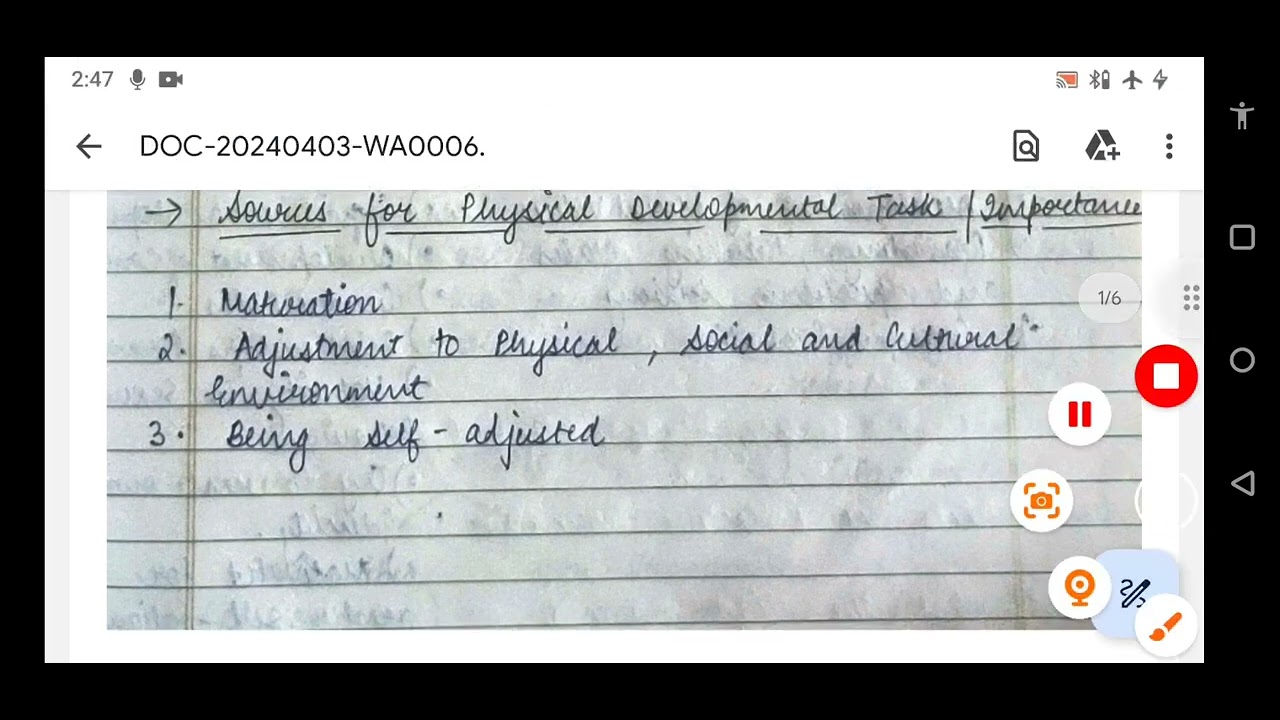 2:47
DOC-20240403-WA0006.
→ Sources for Physical Developmental Task | Importance
1. Maturation
2. Adjustment to Physical, Social and Cultural
Environment
3. Being self-adjusted
1/6